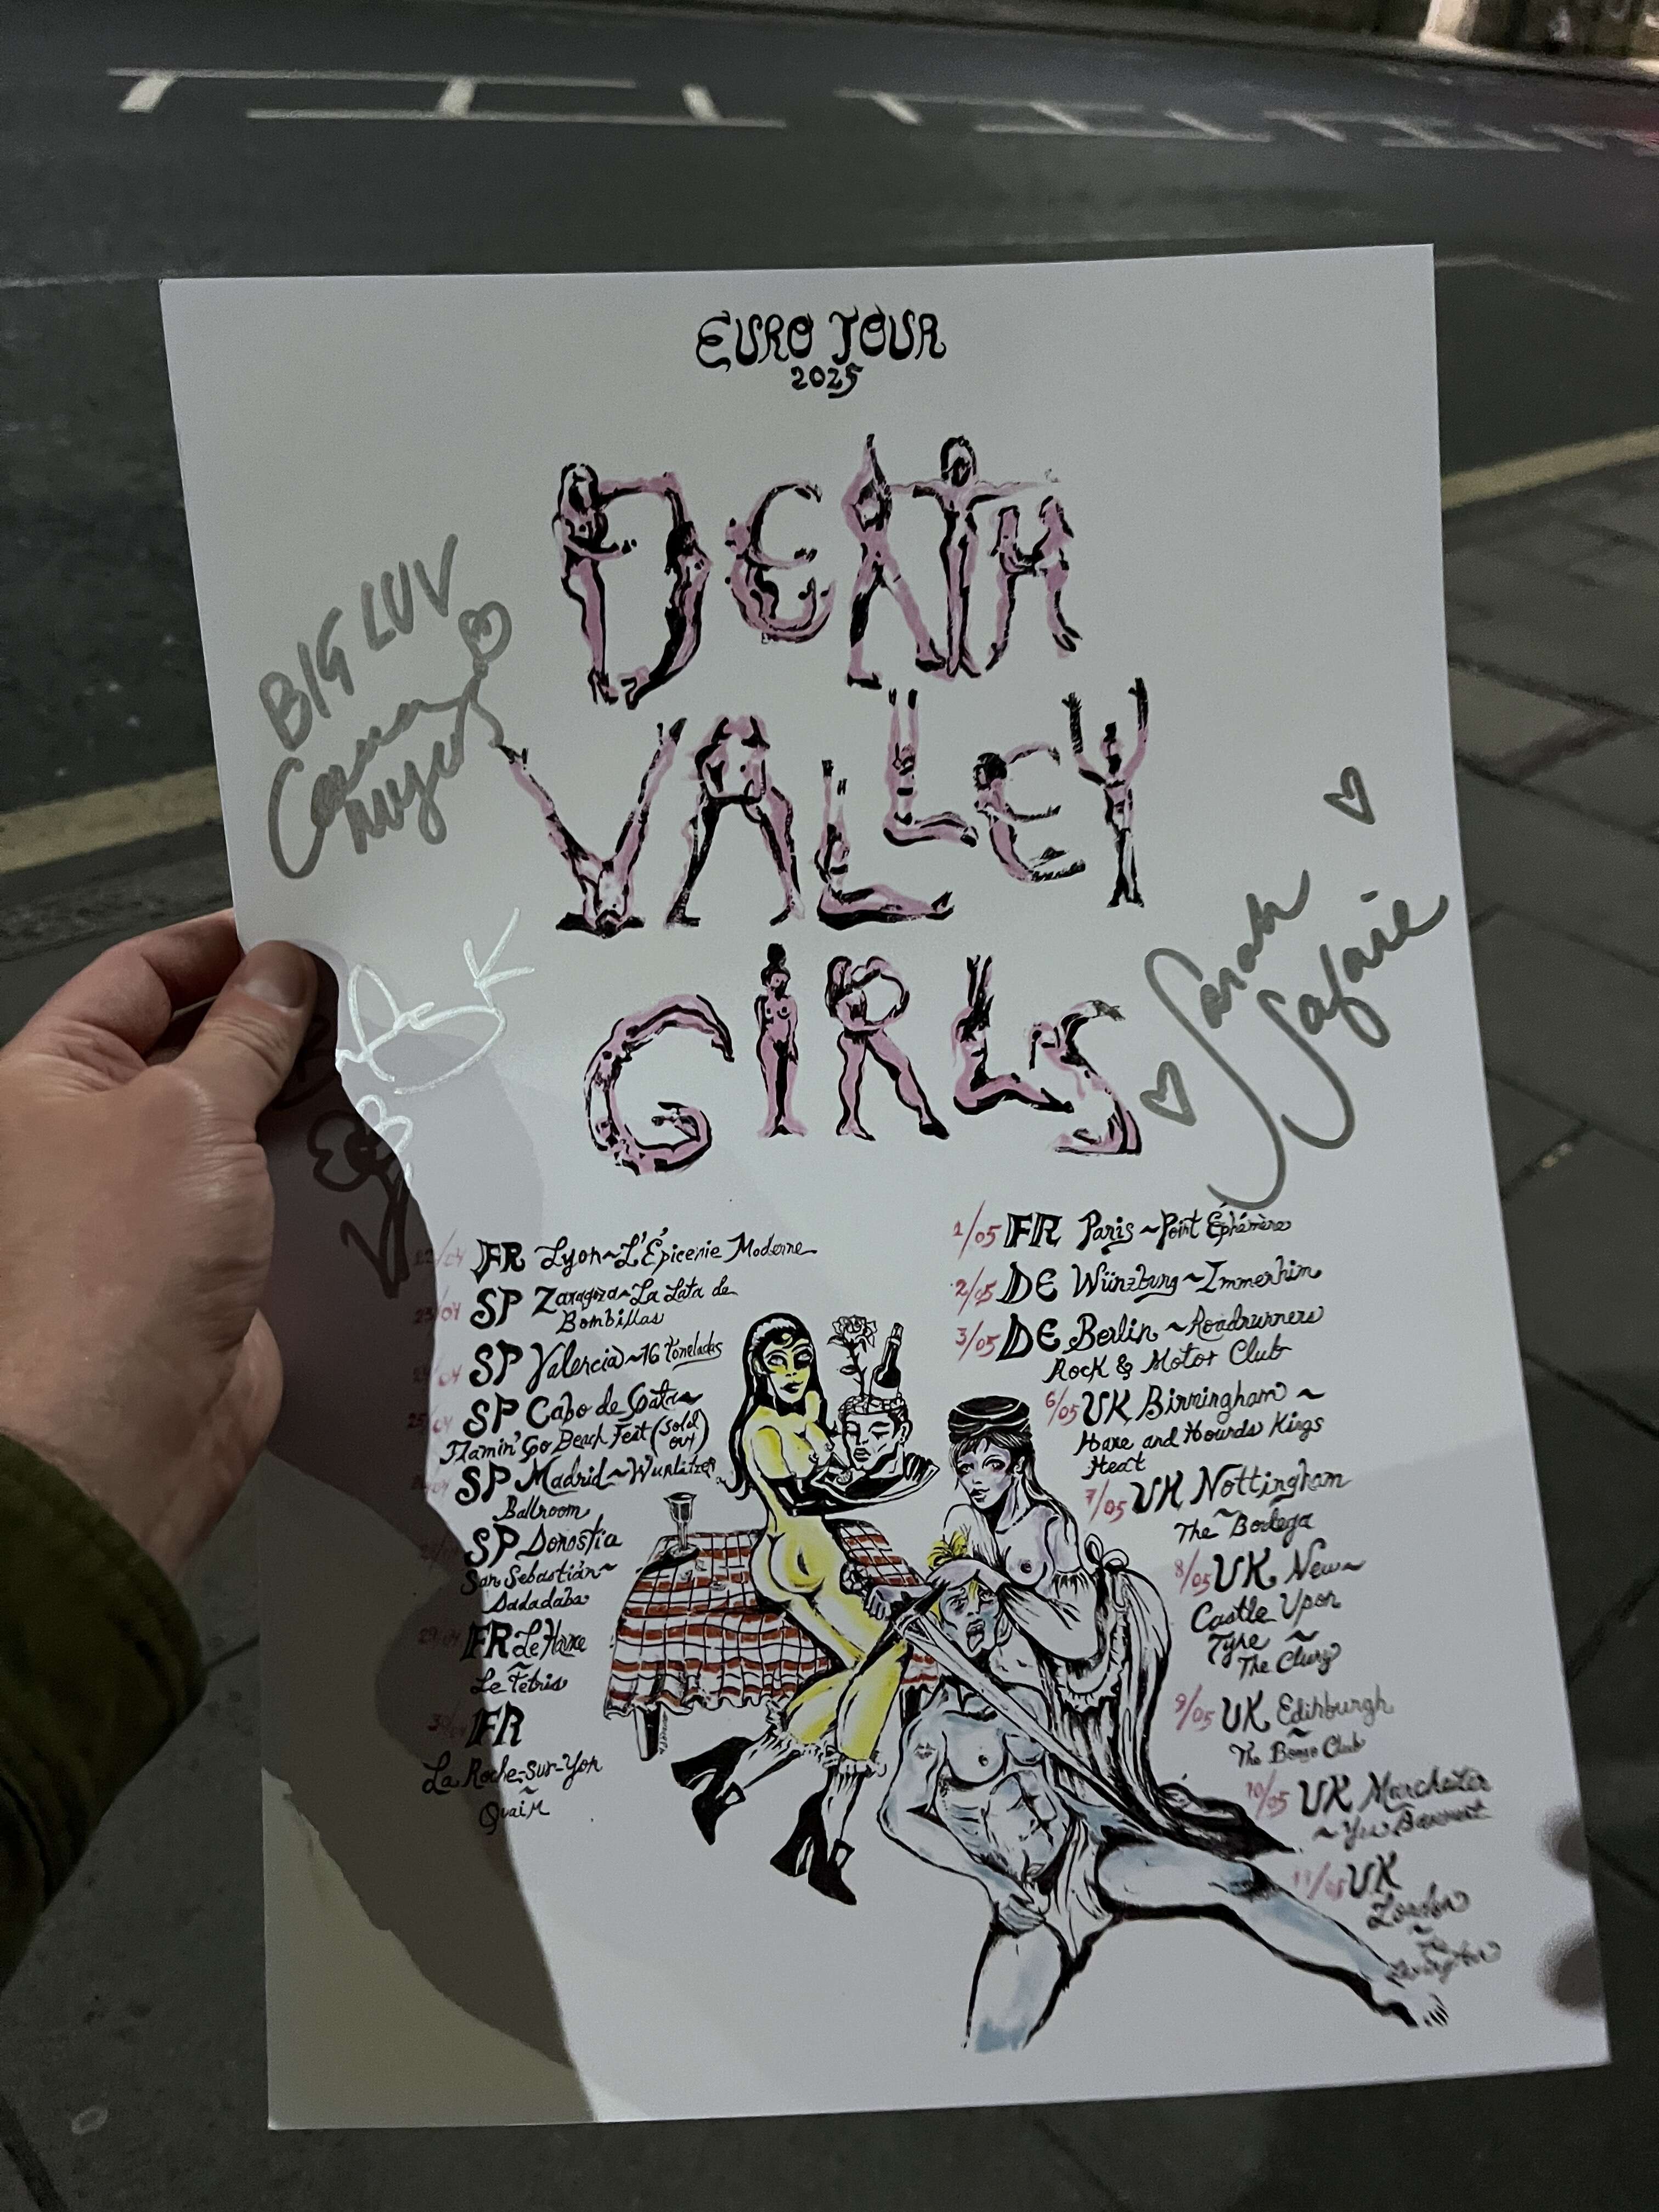 EURO TOUR
2025
DEATH
VALLEY
GIRLS
BIG LUV
Sarah
Safaie
FR Lyon~L'Épicerie Moderne
23/04 SP Zaragoza~La Lata de
Bombillas
SP Valencia~16 toneladas
25/04 SP Cabo de Gata~
Flamin' Go Beach Fest (Sold
out)
SP Madrid~Wurlitzer
Ballroom
SP Donostia
San Sebastián~
Dadadaba
29/04 FR Le Havre
~
Le Tétris
FR
La Roche-sur-Yon
~
Quai M
1/05 FR Paris ~Point Éphémère
2/05 DE Würzburg ~Immerhin
3/05 DE Berlin ~Roadrunners
Rock & Motor Club
6/05 UK Birmingham ~
Hare and Hounds Kings
Heat
7/05 UK Nottingham
~
The Bodega
8/05 UK New~
Castle Upon
Tyne ~
The Cluny
9/05 UK Edinburgh
~
The Bongo Club
10/05 UK Manchester
~Yes Basement
11/05 UK
London
~
The
Lexington